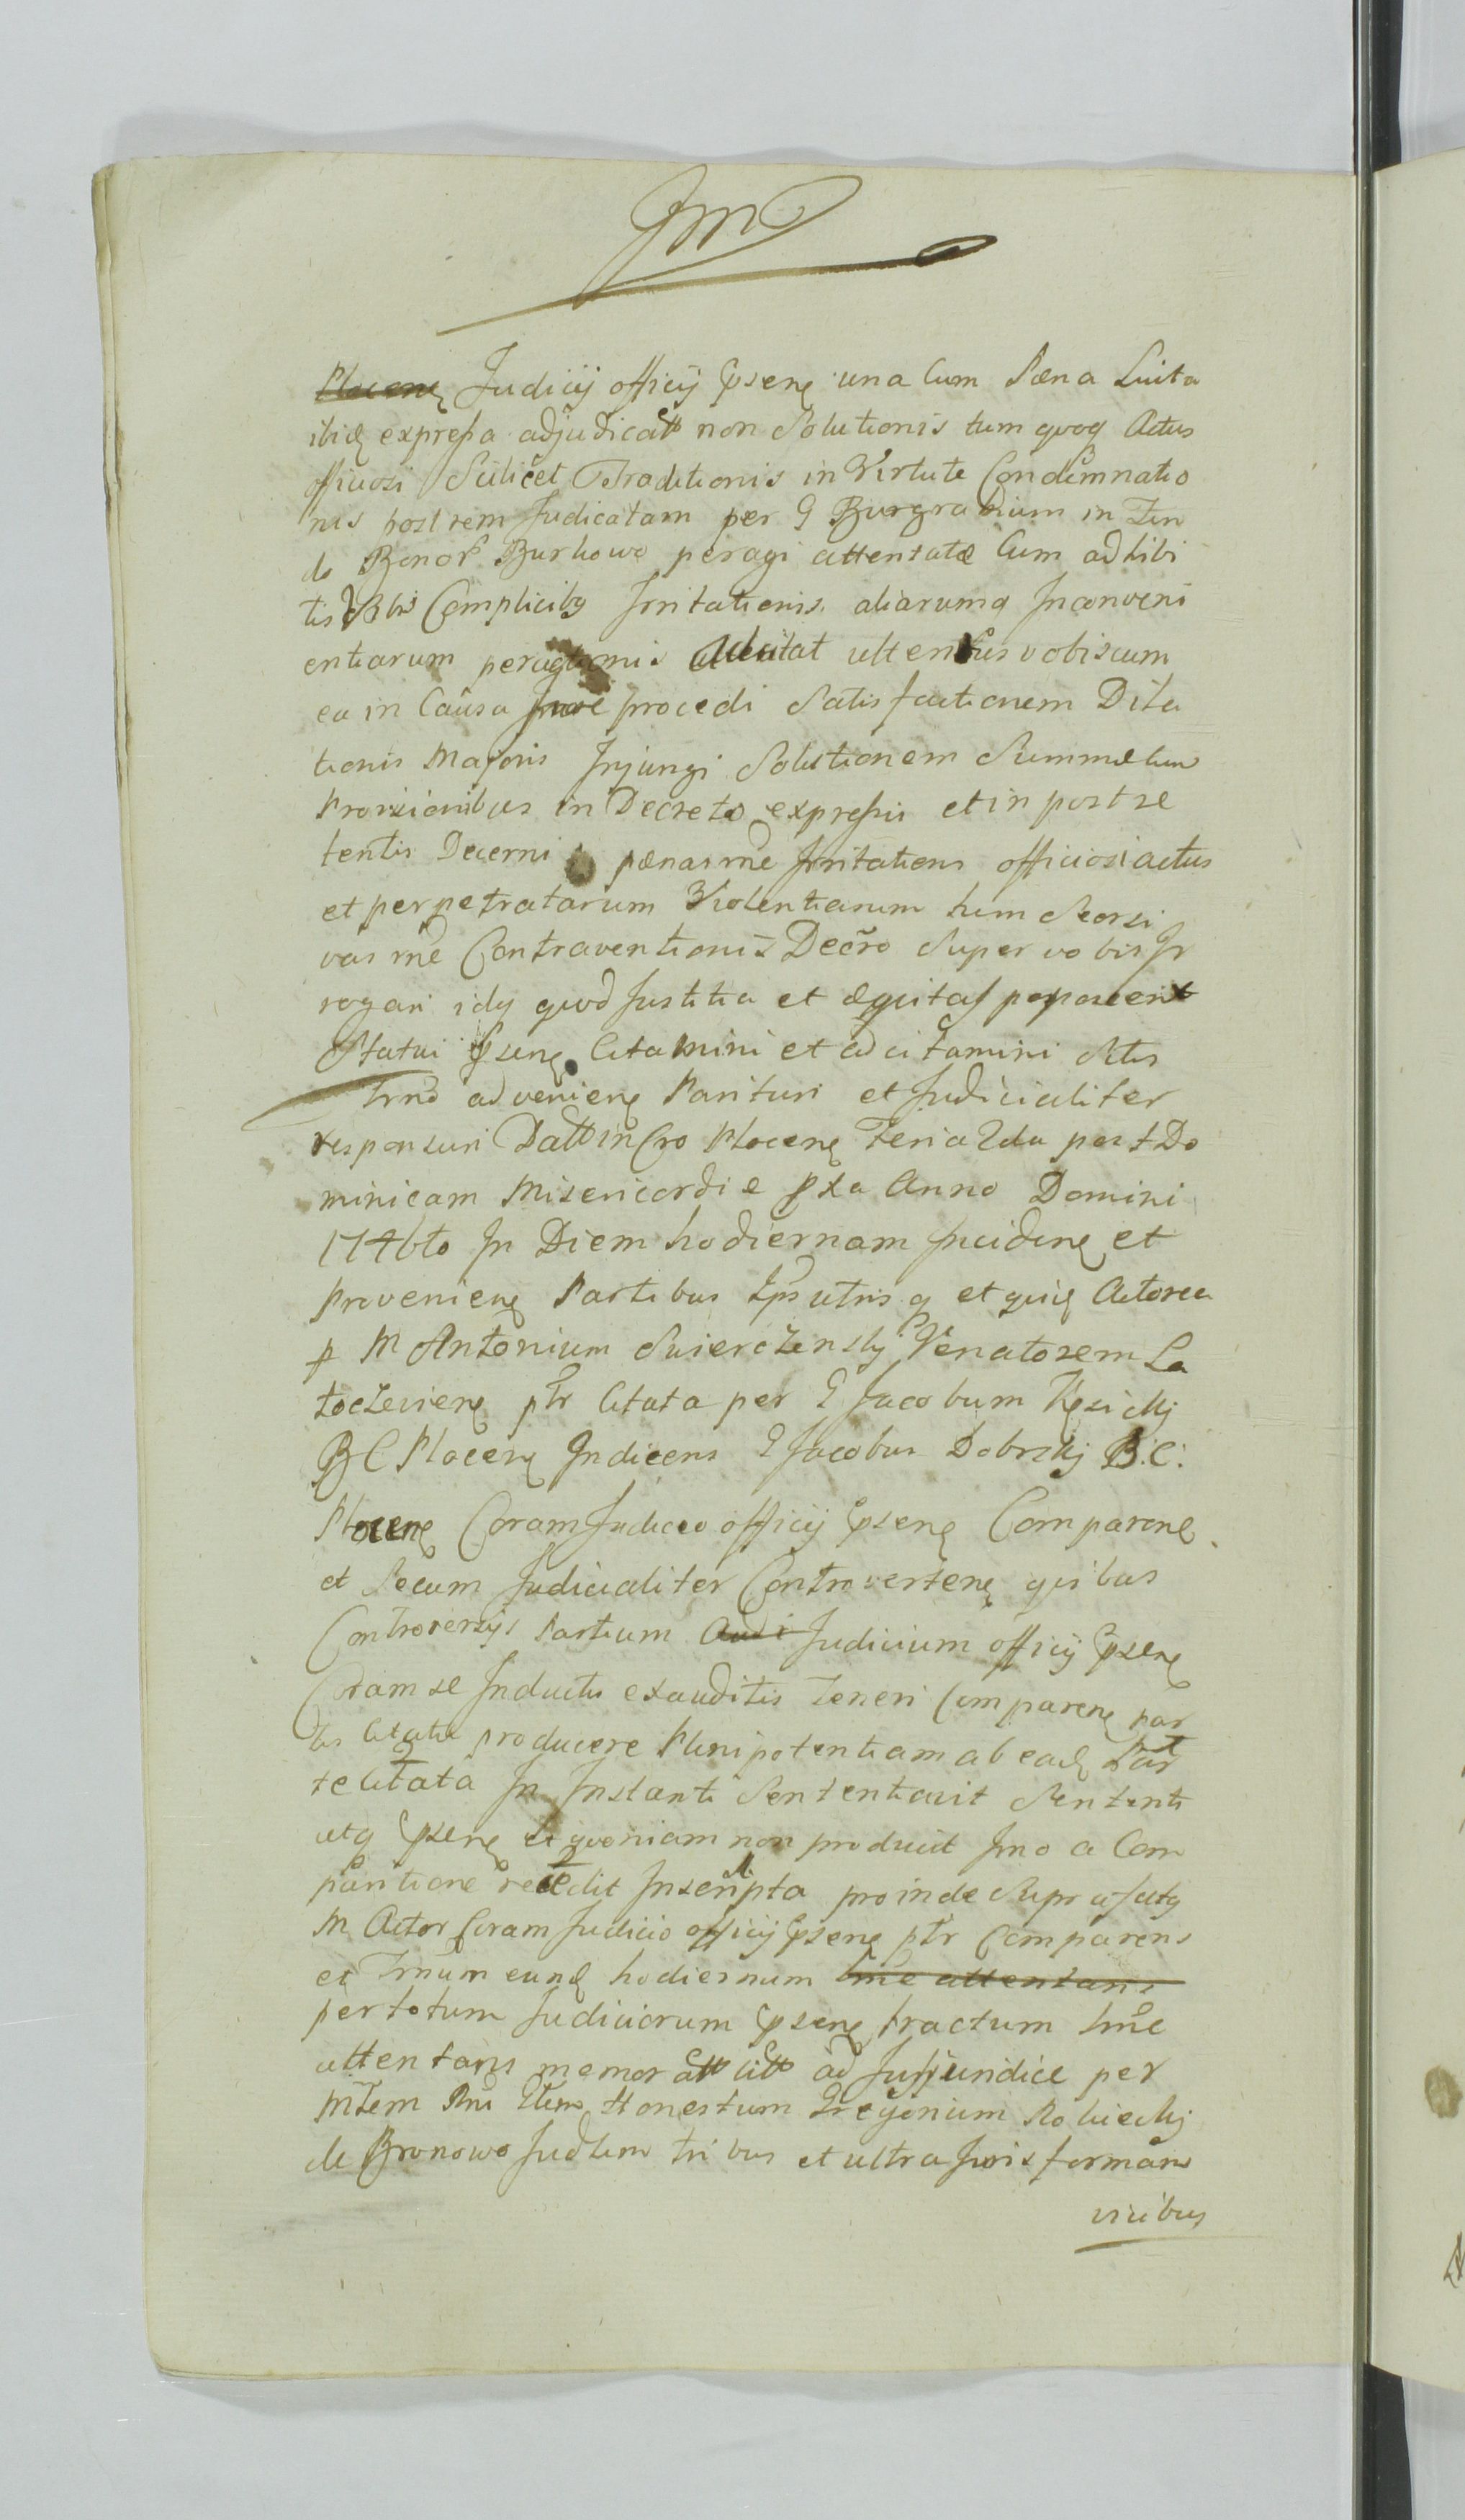 Plocenꝫ Judicij officij Ꝓsenꝫ una Cum Pæna Luita
ibiꝫ expressa adjudicatt non Solutionis tum quoqꝫ Actus
officiosi Scilicet Traditionis in Virtute Condemnatio
nis post rem Judicatam per G Burgrabium in Fun
do Bonor Burkowo peragi attentatæ Cum adhibi
tis Sibi Complicibꝫ Irritationis aliarumqꝫ Inconveni
entiarum ultenius vobiscum
ea in Causa Jure procedi Satisfactionem Dila
tionis Majoris Injungi Solutionem Summæ cum
Provisionibus in Decreto expressis et in post se
tentis Decerni pænas rne Irritationis officiosi actus
et perpetratarum Violentiarum tum Seorsi
vas rne Contraventionis Decro Super vobis Ir
rogari idꝫ quod Justitia et Æquitas poposcerit
Statui Ꝓsenꝫ Citamini et adcitamini Actis
Trnō advenienꝫ Parituri et Judicialiter
responsuri Datt in Cro Plocenꝫ Feria 2da post Do
minicam Misericordie Ꝓxa Anno Domini
1746to In Diem hodiernam Incidenꝫ et
Provenienꝫ Partibus Ipsis utrisqꝫ et quiꝫ Actorea
p M Antonium Swierczenskij Venatorem La
toczeviens ptr Citata per G Jacobum Kęsickij
BC Plocenꝫ Indicens G Jacobus Dobrskij B.C:
Plocenꝫ Coram Judicio officij Ꝓsenꝫ Comparenꝫ
et Secum Judicialiter Controvertenꝫ quibus
Controversijs Partium Audi Judicium officij Ꝓsenꝫ
Coram se Inductis exauditis Teneri Comparenꝫ par
tis Citatæ producere Plenipotentiam ab eadꝫ Par
te Citata In Instanti Sententiavit Sententi
aqꝫ Ꝓsenꝫ Et quoniam non producit Imo a Com
paritione recedit Inscripta proinde Suprafatꝫ
M Actor Coram Judicio officij Ꝓsenꝫ ptr Comparens
et Trnum eundꝫ hodiernum tme attentans
per totum Judiciorum Ꝓsenꝫ tractum tme
attentans memoratt Citt ad Jussjuridice per
Mtem Rni Honestum Gregorium Robieckij
de Bronowo Judlem tribus et ultra Juris formam
vicibus